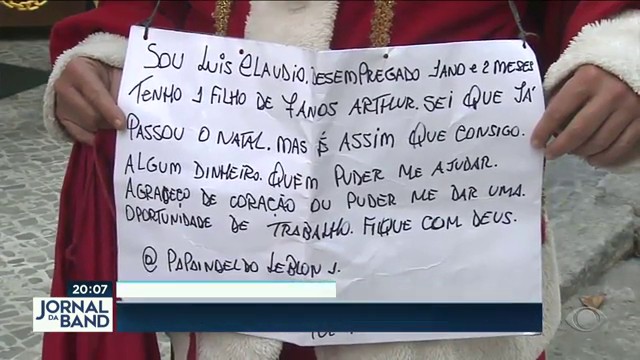 SOU LUIS CLAUDIO, DESEMPREGADO 1 ANO E 2 MESES
TENHO 1 FILHO DE 7 ANOS ARTHUR. SEI QUE JÁ
PASSOU O NATAL. MAS É ASSIM QUE CONSIGO.
ALGUM DINHEIRO. QUEM PUDER ME AJUDAR.
AGRADEÇO DE CORAÇÃO OU PUDER ME DAR UMA.
OPORTUNIDADE DE TRABALHO. FIQUE COM DEUS.
@ PAPAINOELDO LEBLON 1.
20:07
JORNAL
DA BAND